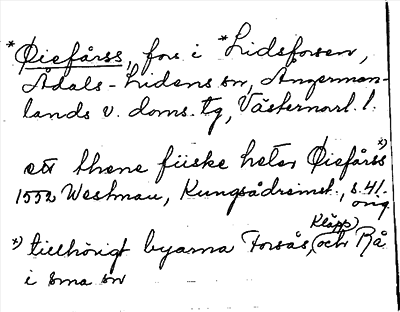 *Øiefårss, fors i *Lidsforsen,
Ådals-Lidens sn, Ångerman-
lands v. doms. tg, Västernorrl. l.
ett thene fiiske heter Øiefårss *)
1552 Westmau, Kungsådreinst., s. 41.
orig.
*) tillhörigt byarna Forsås, Kläpp) och Rå
i sma sn